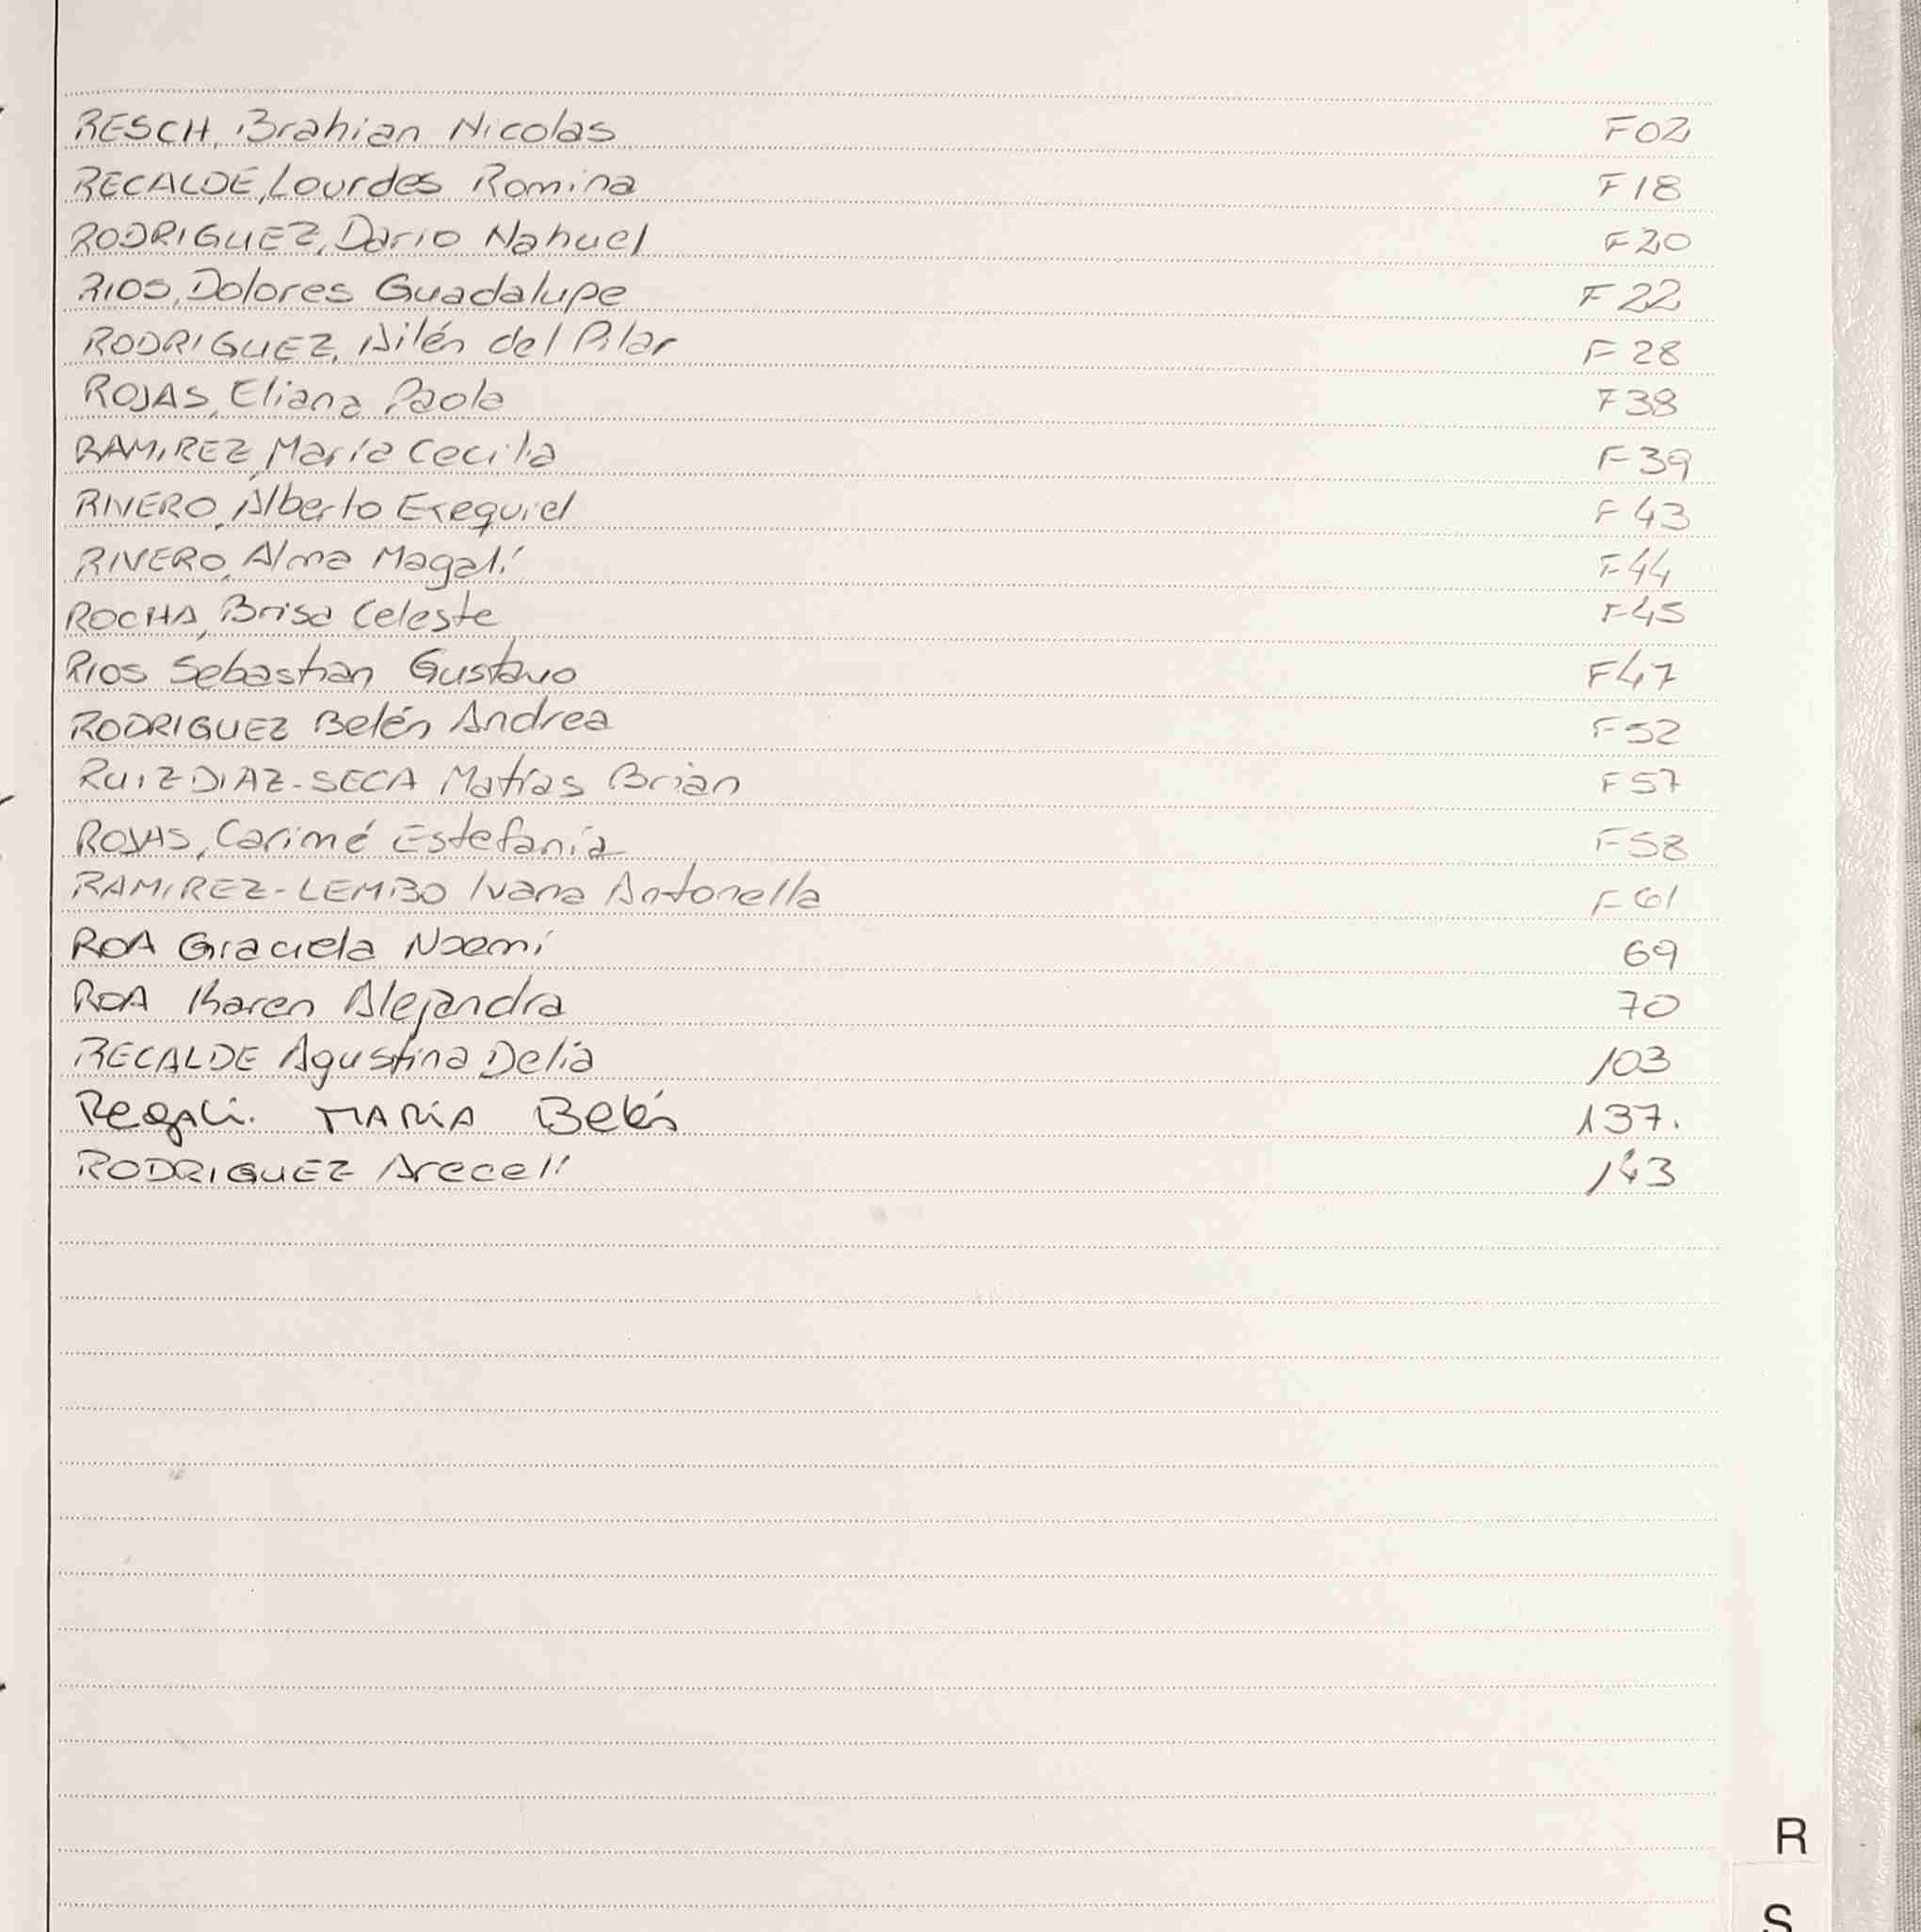 RESCH, Brahian Nicolas F02
RECALDE, Lourdes Romina F18
RODRIGUEZ, Dario Nahuel F20
RIOS, Dolores Guadalupe F22
RODRIGUEZ, Ailén del Pilar F28
ROJAS, Eliana Paola F38
RAMIREZ, María Cecilia F39
RIVERO, Alberto Exequiel F43
RIVERO, Alma Magalí F44
ROCHA, Brisa Celeste F45
RIOS Sebastian Gustavo F47
RODRIGUEZ Belén Andrea F52
RUIZ DIAZ-SECA Matías Brian F57
ROJAS, Carimé Estefanía F58
RAMIREZ-LEMBO Ivana Antonella F61
ROA Graciela Noemí 69
ROA Karen Alejandra 70
RECALDE Agustina Delia 103
Regali. MARÍA Belén 137.
RODRIGUEZ Areceli 143
R
S